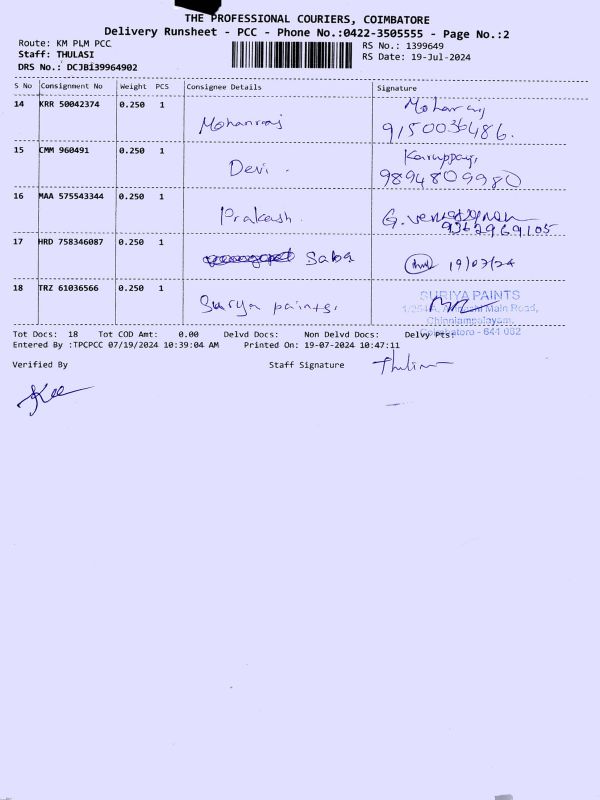 THE PROFESSIONAL COURIERS, COIMBATORE
Delivery Runsheet - PCC - Phone No.:0422-3505555 - Page No.:2
Route: KM PLM PCC
RS No.: 1399649
Staff: THULASI
RS Date: 19-Jul-2024
DRS No.: DCJBi39964902
S No Consignment No Weight PCS Consignee Details Signature
14 KRR 50042374 0.250 1 Mohanraj Mohanraj
9150036486.
15 CMM 960491 0.250 1 Devi. Karuppay,
9894809980
16 MAA 575543344 0.250 1 Prakash. G.
9362969105
17 HRD 758346087 0.250 1 Saba 19/07/24
18 TRZ 61036566 0.250 1 Surya paints, SURIYA PAINTS
Main Road,
Chinniampalayam,
Coimbatore - 641 062
Tot Docs: 18 Tot COD Amt: 0.00 Delvd Docs: Non Delvd Docs: Delvy Pts:
Entered By :TPCPCC 07/19/2024 10:39:04 AM Printed On: 19-07-2024 10:47:11
Verified By Staff Signature